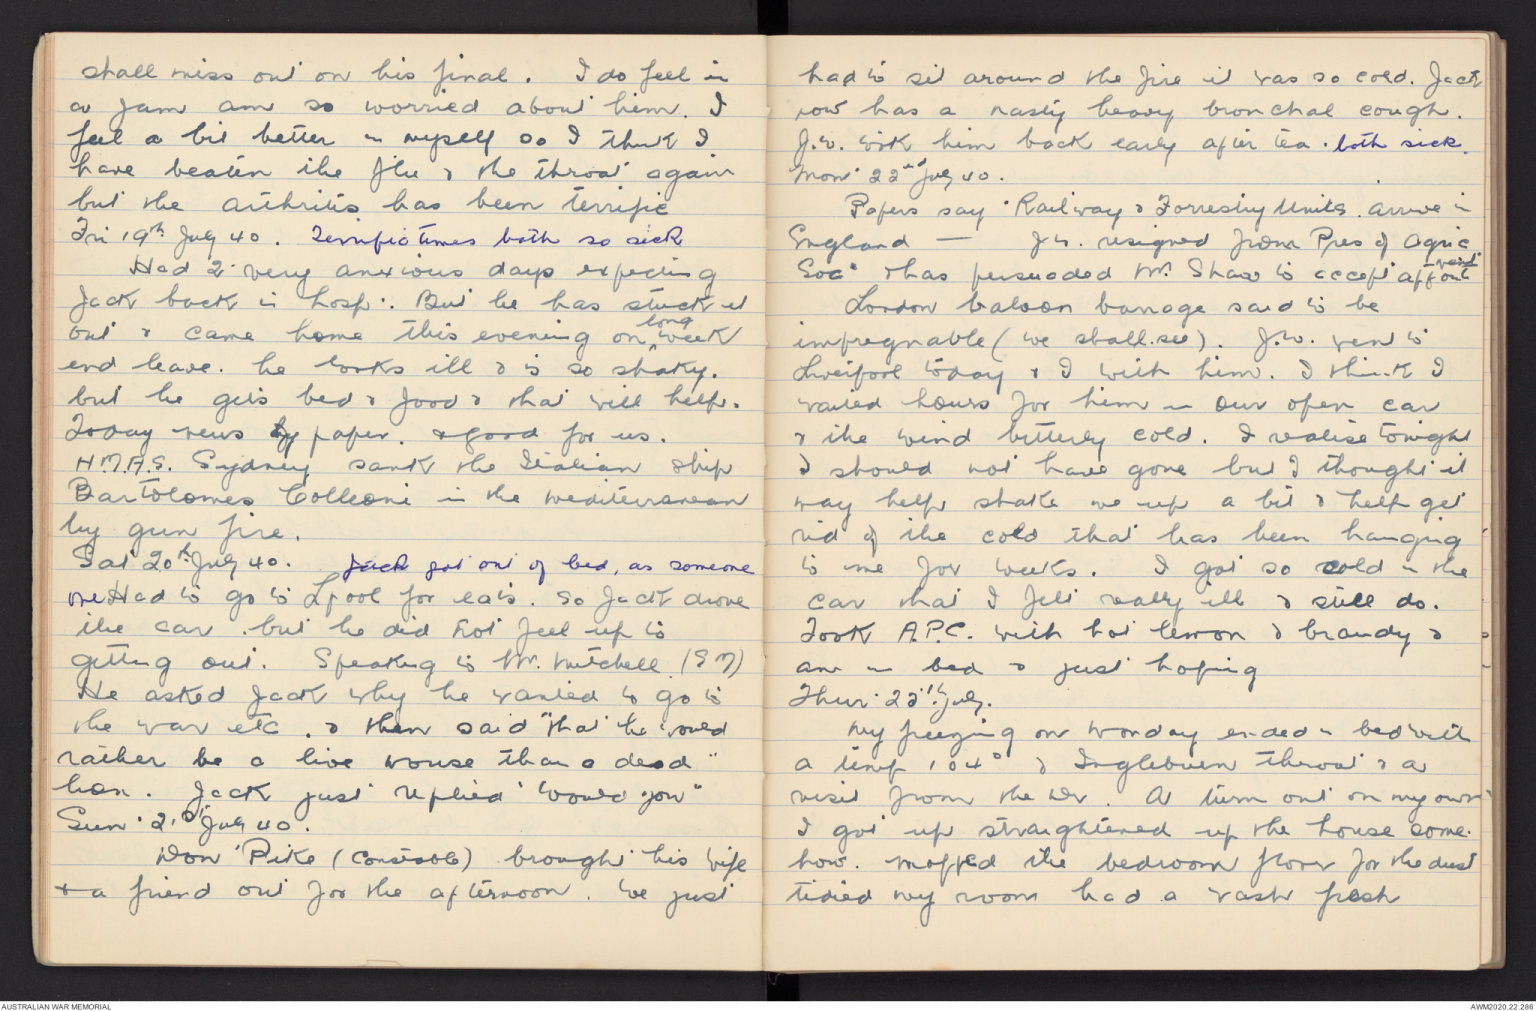 shall miss out on his final. I do feel in
a jam am so worried about him. I
feel a bit better in myself so I think I
have beaten the flu & the throat again
but the arthritis has been terrific
Fri 19th July 40. Terrific times both so sick
Had 2 very anxious days expecting
Jack back in hosp:. But he has stuck it
out & came home this evening on long week
end leave. he looks ill & is so shaky.
but he gets bed & food & that will help.
Today news by paper. & good for us.
H.M.A.S. Sydney sank the Italian ship
Bartolomeo Colleoni in the mediterranean
by gun fire.
Sat 20th July 40. Jack got out of bed, as someone
one Had to go to L'pool for eats. So Jack drove
the car. but he did not feel up to
getting out. Speaking to Mr. Mitchell (S M)
He asked Jack why he wanted to go to
the war etc. & then said "that he would
rather be a live mouse than a dead
lion". Jack just replied "would you"
Sun 21st July 40.
Don Pike (Constable) brought his wife
& a friend out for the afternoon. We just
had to sit around the fire it was so cold. Jack
now has a nasty heavy bronchal cough.
J.W. took him back early after tea. both sick.
Mon 22nd July 40.
Papers say Railway & Forrestry Units. arrive in
England — J.W. resigned from Pres of Agric
Soc & has persuaded Mr. Shaw to accept appointment
London baloon barrage said to be
impregnable (we shall see). J.W. went to
Liverpool today & I with him. I think I
waited hours for him in our open car
& the wind bitterly cold. I realise tonight
I should not have gone but I thought it
may help shake me up a bit & help get
rid of the cold that has been hanging
to me for weeks. I got so cold in the
car that I felt really ill & still do.
Took A.P.C. with hot lemon & brandy &
am in bed & just hoping
Thur 25th July.
My freezing on Monday ended in bed with
a temp 104° & Ingleburn throat & a
visit from the Dr. At turn out on my own
I got up straightened up the house some
how. mopped the bedroom floor for the dust
tidied my room had a wash fresh
AUSTRALIAN WAR MEMORIAL
AWM2020.22.286